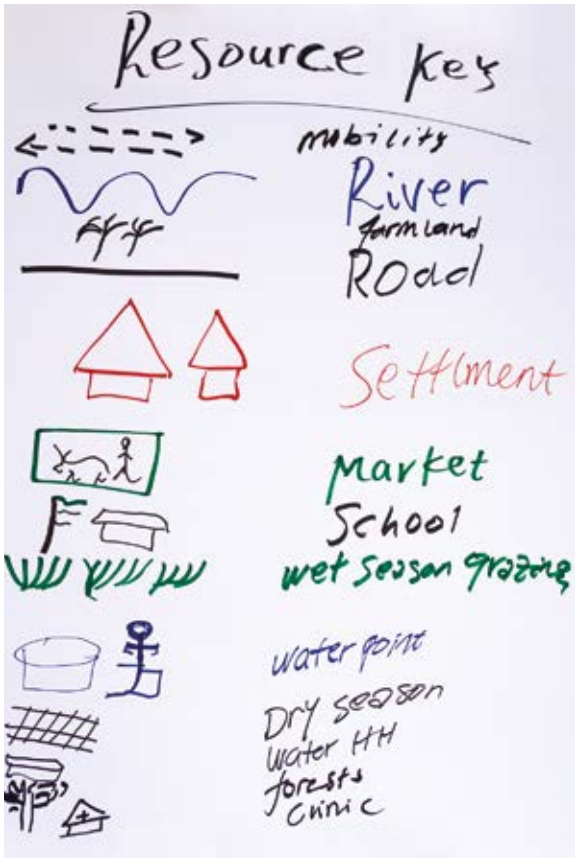 Resource Key
mobility
River
farmland
Road
Settlment
market
School
wet season grazing
water point
Dry season
water HH
forests
Clinic